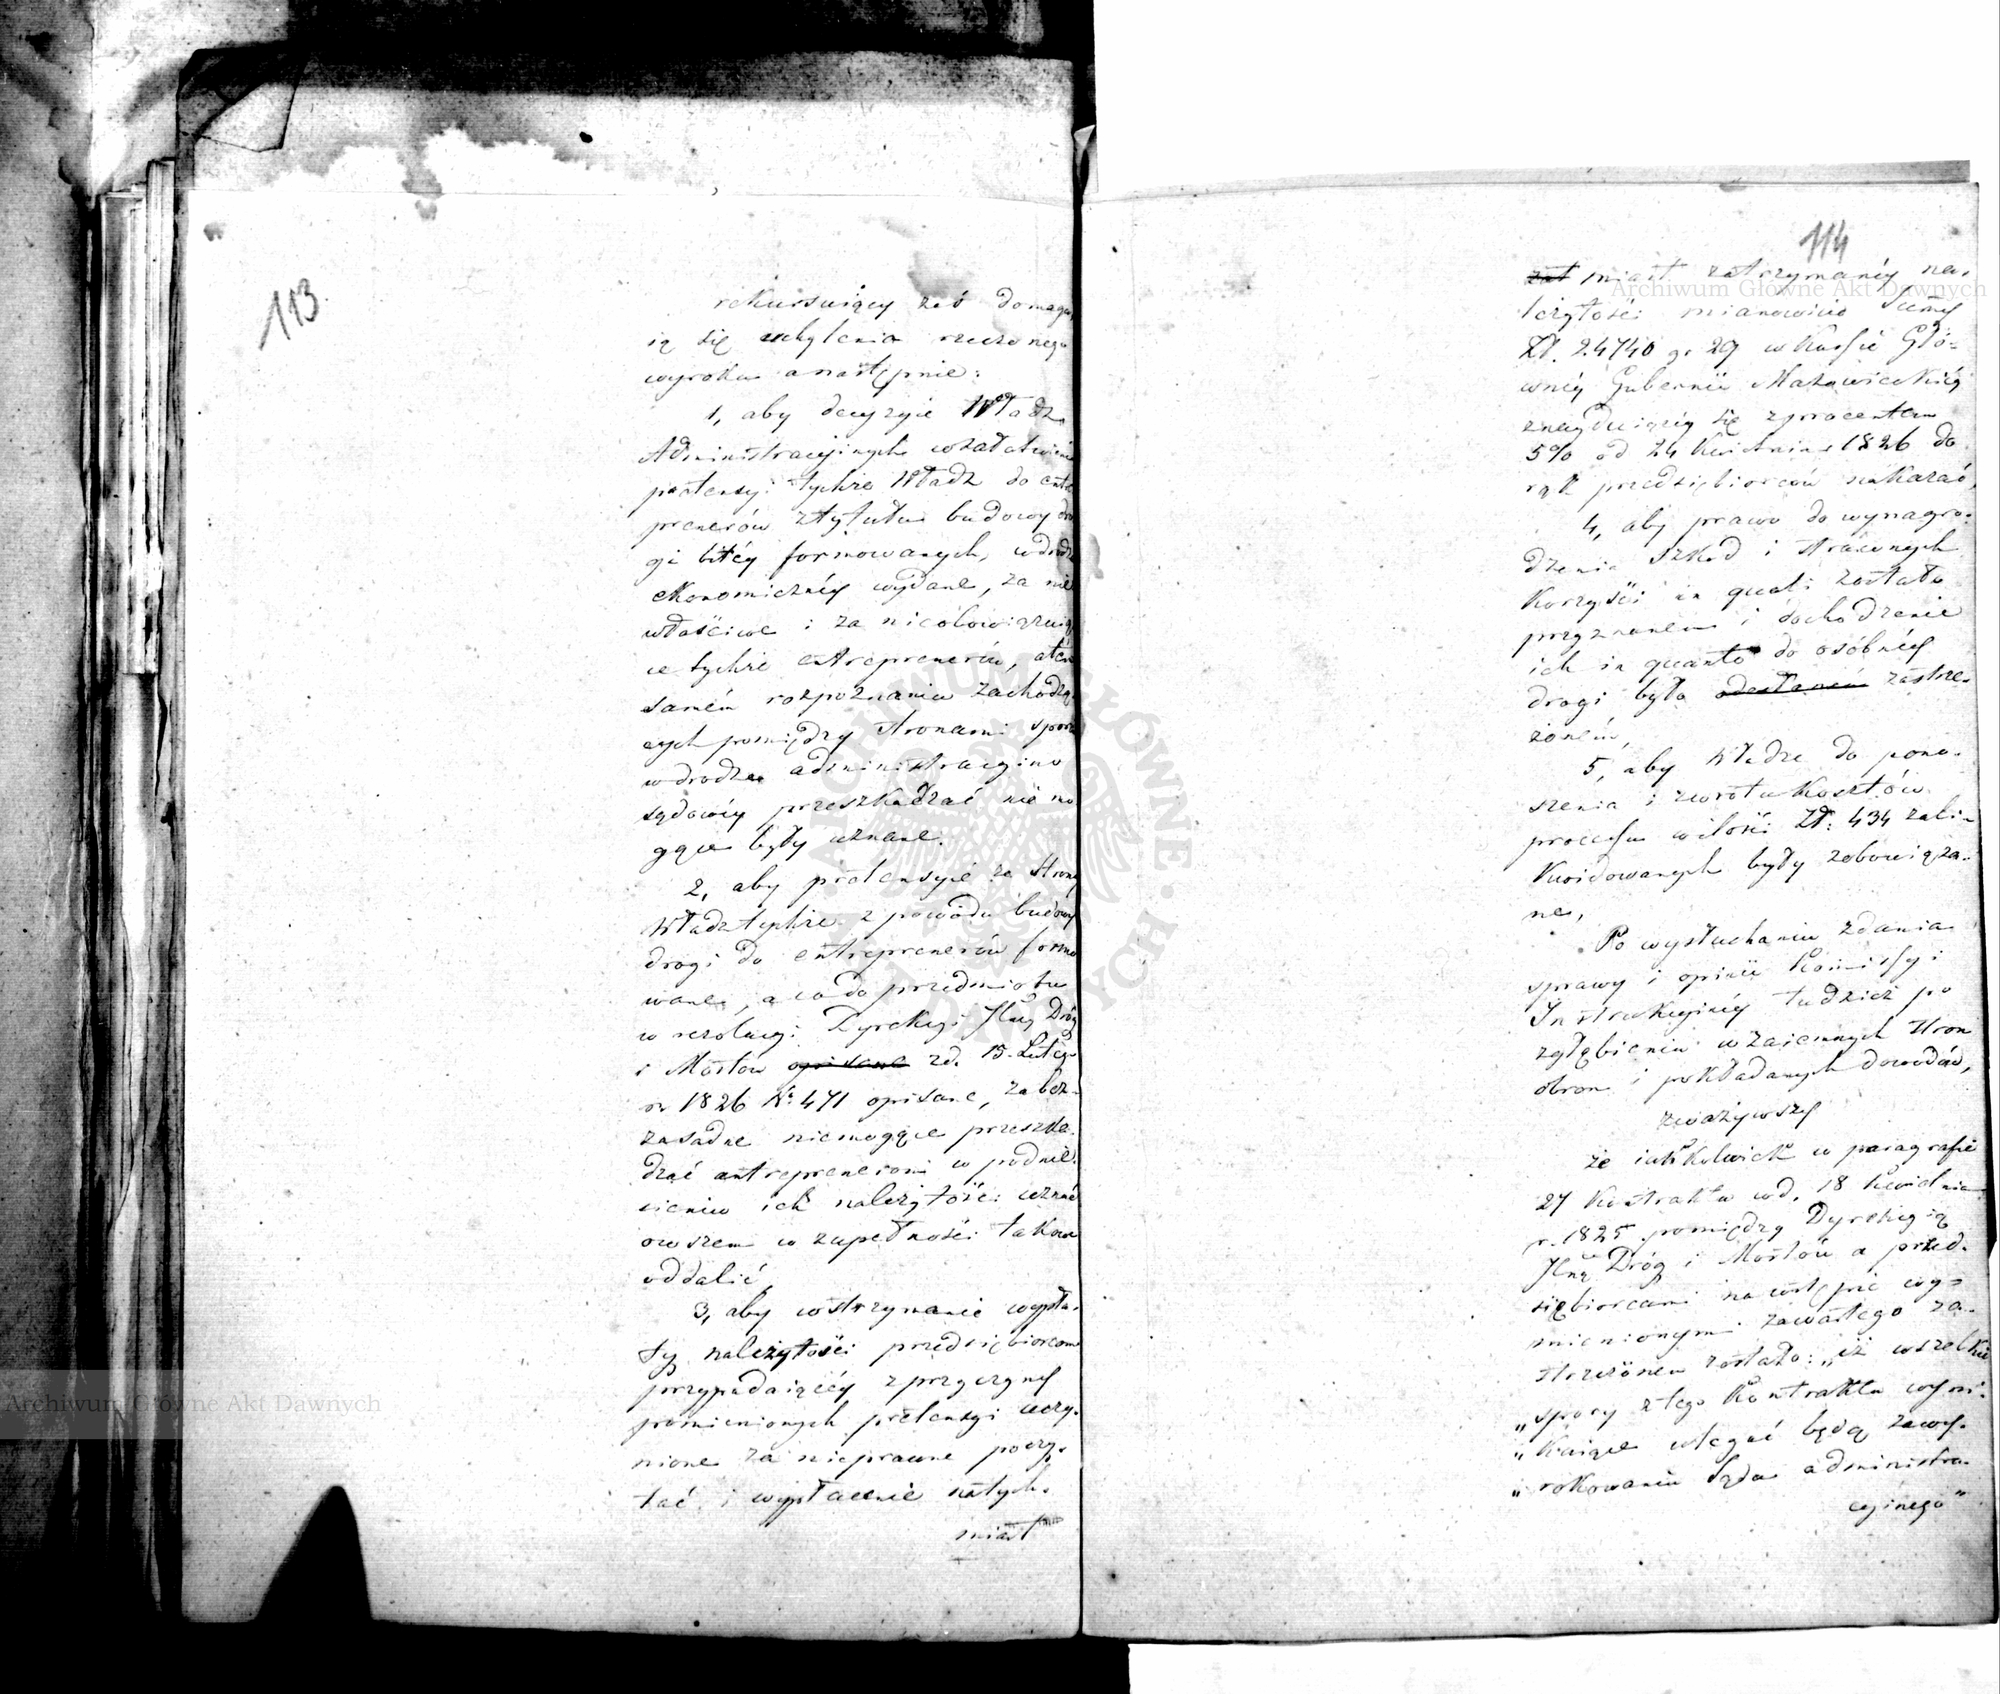 113
rekursuiący zaś domaga
ią się uchylenia rzeczonego
wyroku a następnie:
1, aby decyzyie Władz
Administracyinych w załatwieniu
pretensyi tychże Władz do entre
prenerów z tytułu budowy dro
gi bitéy formowanych, w drodze
ekonomicznéy wydane, za nie
właściwe i za nieobowiązuią
ce tychże entreprenerów, a tém
samém rozpoznaniu zachodzą
cych pomiędzy stronami sporów
w drodze administracyino
sądowéy przeszkadzać nie mo
gące były uznane.
2, aby pretensyie ze strony
Władz tychże z powodu budowy
drogi do entreprenerów formo
wane, a co do przedmiotu
w rezolucyi Dyrekcyi Jlnéy Dróg
i Mostów opisane zd. 15. Lutego
r. 1826 No 471 opisane, za bez-
zasadne niemogące przeszka-
dzać entreprenerom w podnie-
sieniu ich należytości uznać
owszem w zupełności takowe
oddalić,
3, aby wstrzymanie wypła-
ty należytości przedsiębiorcom
przypadaiącéy z przyczyny
pomienionych pretensyi uczy-
nione za nieprawne poczy-
tać i wypłacenie natych-
miast
114
zat miast zatrzymanéy na-
leżytości mianowicie Summy
Zł. 24740 gr 29 w Kassie Głó-
wnéy Gubernii Mazowieckiéy
znayduiącéy się z procentem
5% od 24 Kwietnia 1826 do
rąk przedsiębiorców nakazać,
4, aby prawo do wynagro-
dzenia szkód i straconych
korzyści in quali zostało
przyznanem i dochodzenie
ich in quanto do osóbnéy
drogi było odesłaném zastrze-
żoném,
5, aby Władze do pono-
szenia i zwrotu kosztów
processu w ilości Zł: 434 zali-
kwidowanych były zobowiąza-
ne,
Po wysłuchaniu zdania
sprawy i opinii Kommissyi
Instrukcyinéy tudzież po
zgłębieniu wzaiemnych stron
obron i pokładanych dowodów,
zważywszy
że iakkolwiek w paragrafie
27 Kontraktu w d. 18 Kwietnia
r. 1825 pomiędzy Dyrekcyią
Jlną Dróg i Mostów a przed-
siębiorcami na wstępie wy-
mienionymi zawartego za-
strzeżonem zostało: „iż wszelkie
„spory z tego Kontraktu wyni-
„kaiące ulegać będą zawy-
„rokowaniu Sądu administra-
cyinego"
Archiwum Główne Akt Dawnych
Archiwum Główne Akt Dawnych
Archiwum Główne Akt Dawnych
ARCHIWUM GŁÓWNE AKT DAWNYCH